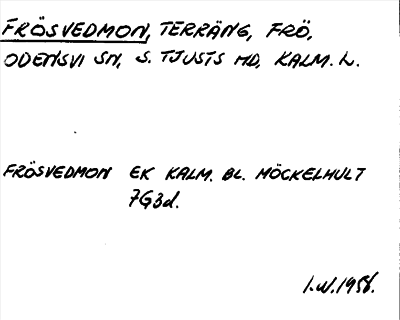 FRÖSVEDMON, TERRÄNG, FRÖ,
ODENSVI SN, S. TJUSTS HD, KALM. L.
FRÖSVEDMON EK KALM. BL. MÖCKELHULT
7G3d.
I.W.1958.